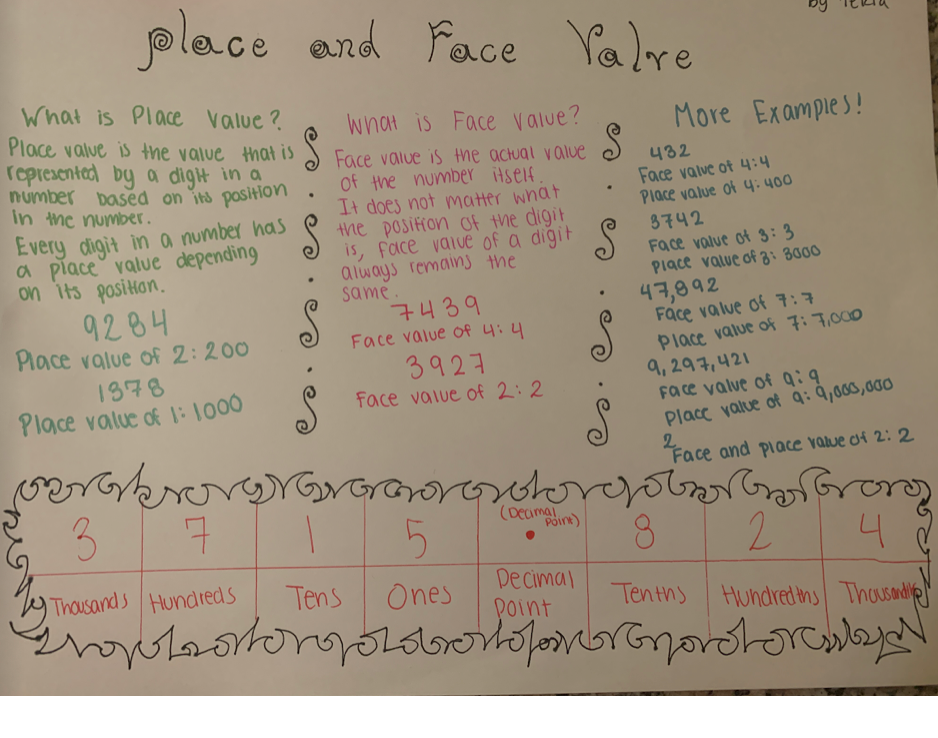 by
Place and Face Value
What is Place Value?
Place value is the value that is
represented by a digit in a
number based on its position
in the number.
Every digit in a number has
a place value depending
on its position.
9284
Place value of 2: 200
1378
Place value of 1: 1000
What is Face Value?
Face value is the actual value
of the number itself.
It does not matter what
the position of the digit
is, face value of a digit
always remains the
same.
7439
Face value of 4: 4
3927
Face value of 2: 2
More Examples!
432
Face value of 4: 4
Place value of 4: 400
3742
Face value of 3: 3
Place value of 3: 3000
47,892
Face value of 7: 7
Place value of 7: 7,000
9,297,421
Face value of 9: 9
Place value of 9: 9,000,000
2
Face and place value of 2: 2
3 7 1 5 (Decimal Point) . 8 2 4
Thousands Hundreds Tens Ones Decimal Point Tenths Hundredths Thousandths